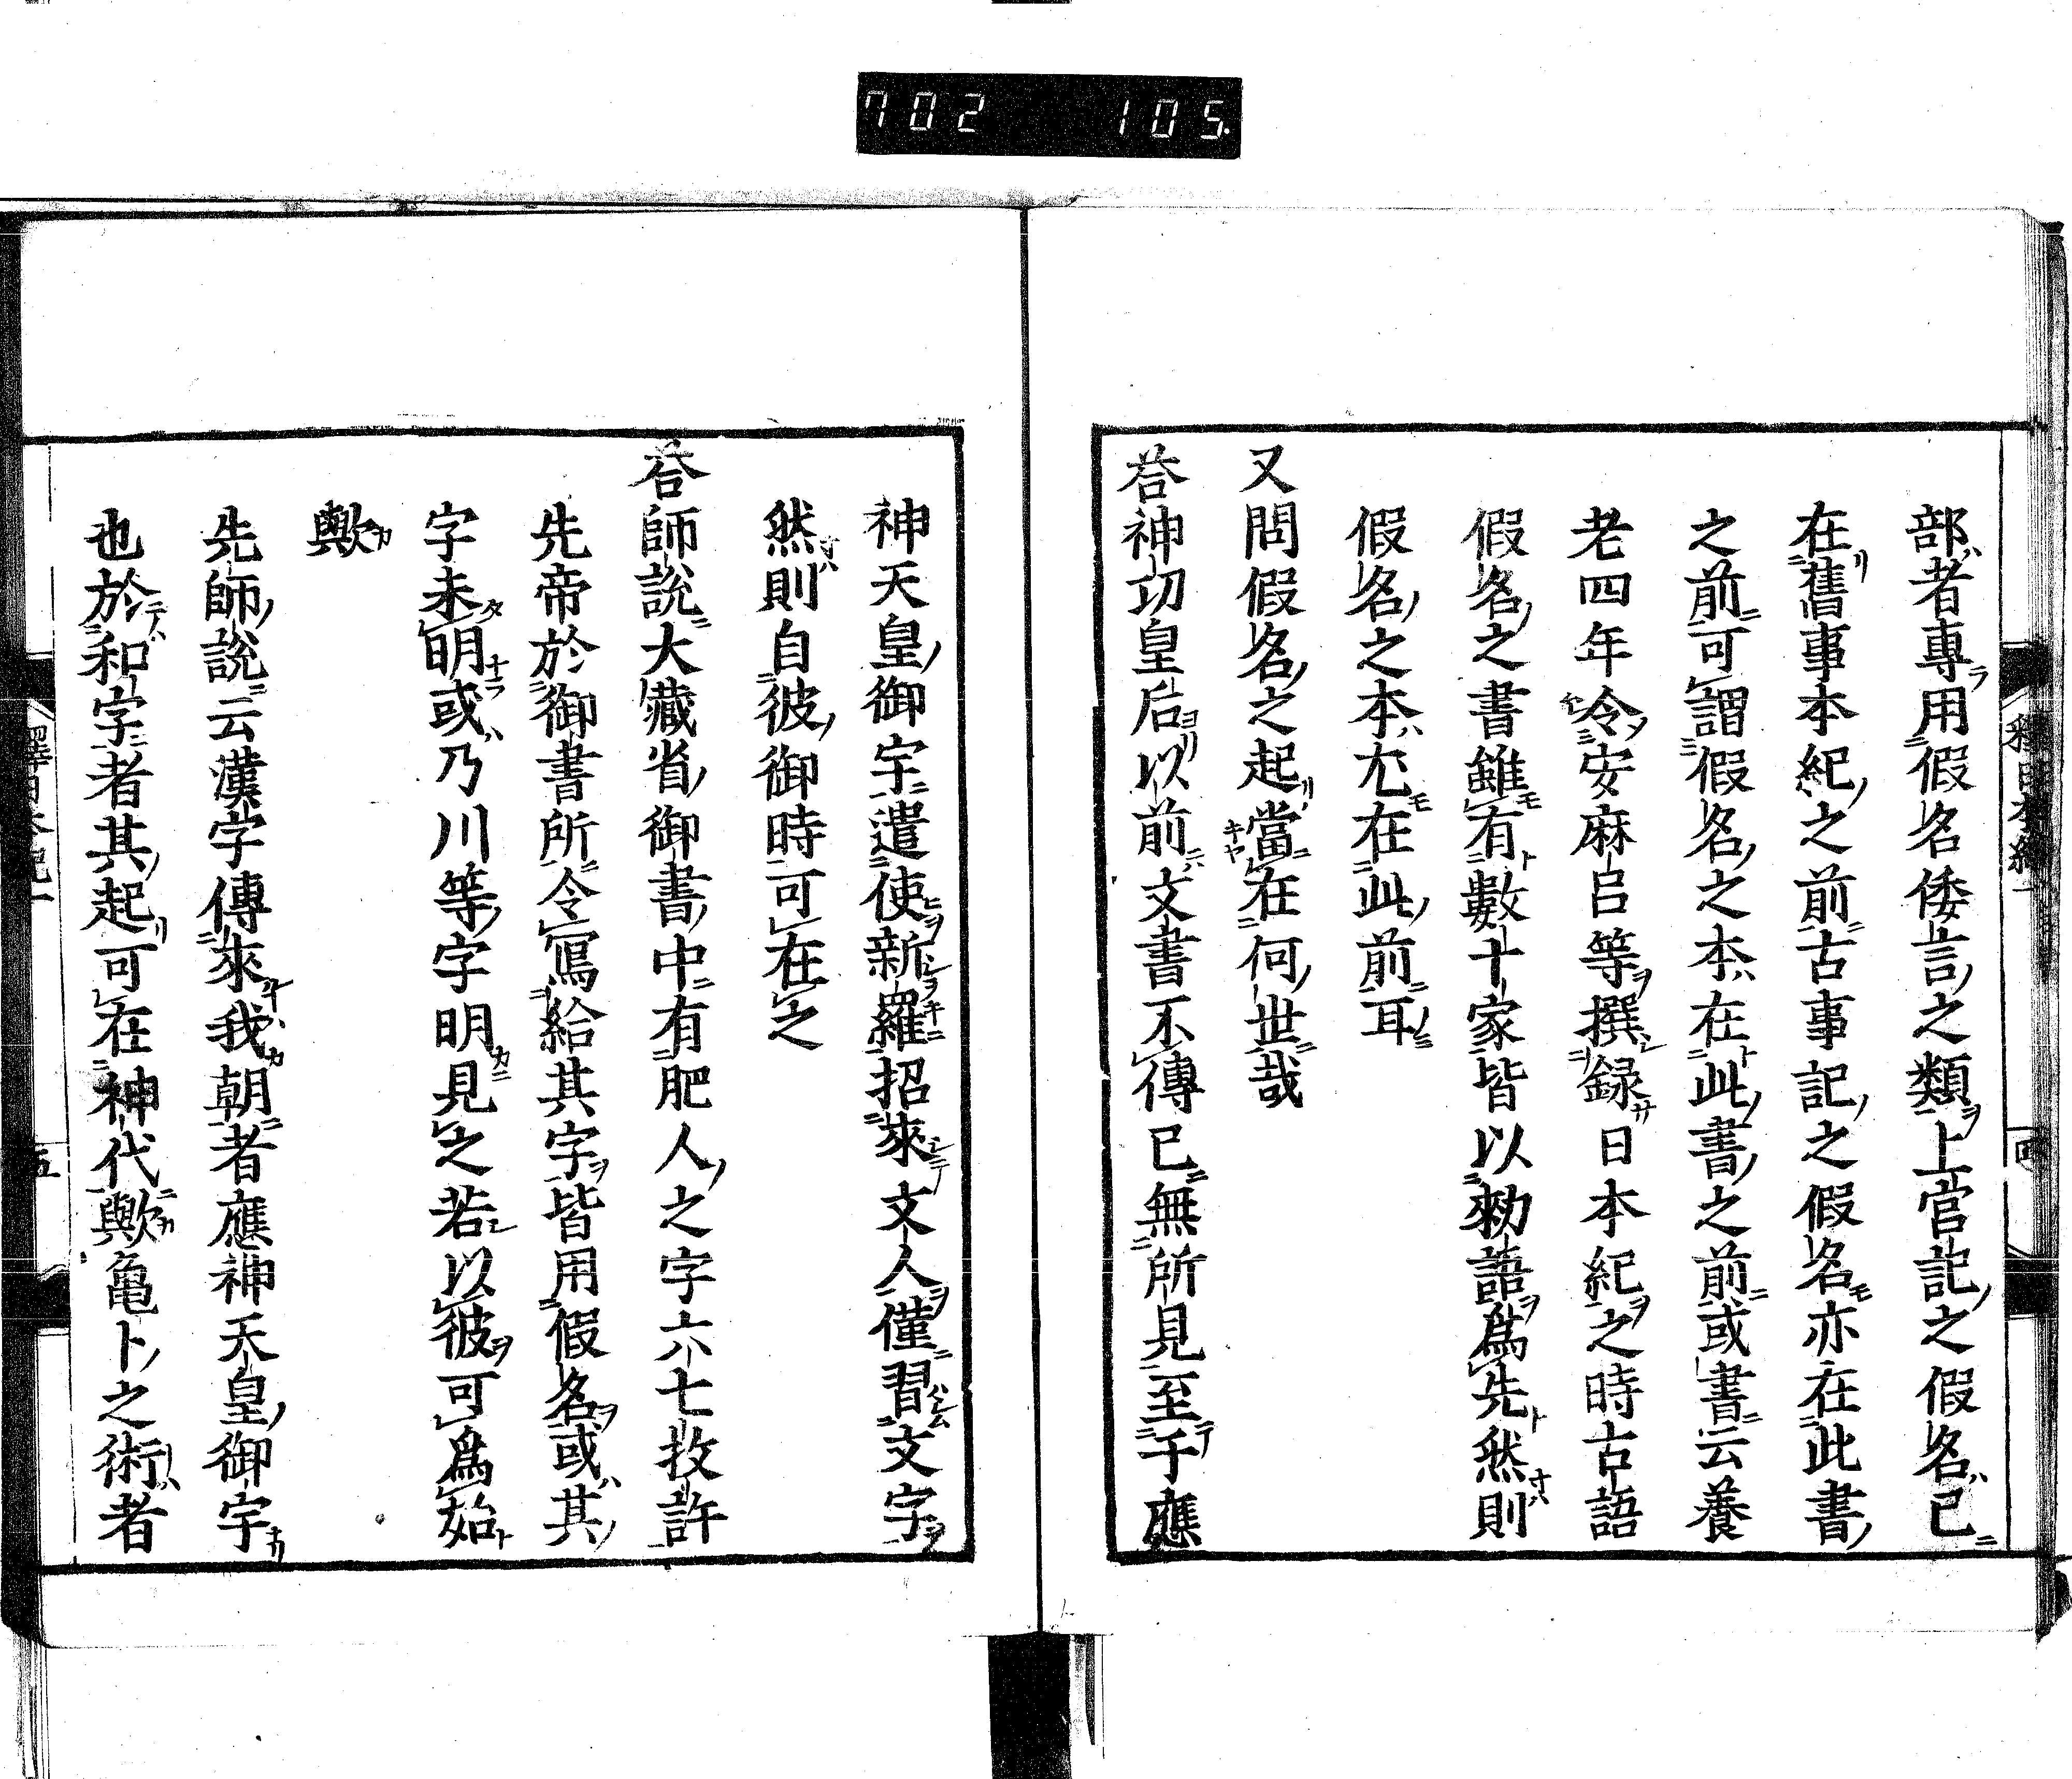 702 105
部者專用假名倭言之類上官記之假名已
在舊事本紀之前古事記之假名亦在此書
之前可謂假名之本在此書之前或書云養
老四年令安麻呂等撰録日本紀之時古語
假名之書雖有數十家皆以勅語爲先然則
假名之本尤在此前耳
又問假名之起當在何世哉
荅神功皇后以前文書不傳已無所見至于應
神天皇御宇遣使新羅招來文人僅習文字
然則自彼御時可在之
荅師說大藏省御書中有肥人之字六七枚許
先帝於御書所令寫給其字皆用假名或其
字未明或乃川等字明見之若以彼可爲始
歟
先師說云漢字傳來我朝者應神天皇御宇
也於和字者其起可在神代歟亀卜之術者
五